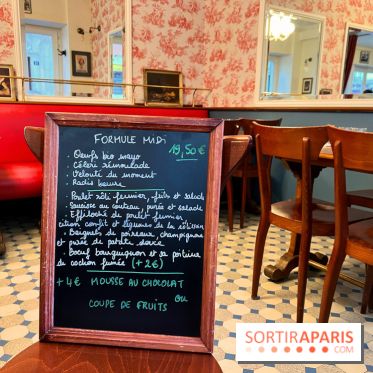 FORMULE MIDI
19,50€
. Oeufs bio mayo
. Céleri rémoulade
. Velouté du moment
. Radis beurre
. Poulet rôti fermier, frites et salade
. Saucisse au couteau, purée et salade
. Effiloché de poulet fermier,
citron confit et légumes de la
. Beignets de poireaux, champignons
et purée de patate douce
. Boeuf bourguignon et sa poitrine
de cochon fumée (+2€)
+4€ MOUSSE AU CHOCOLAT
ou
COUPE DE FRUITS
SORTIRAPARIS
.COM